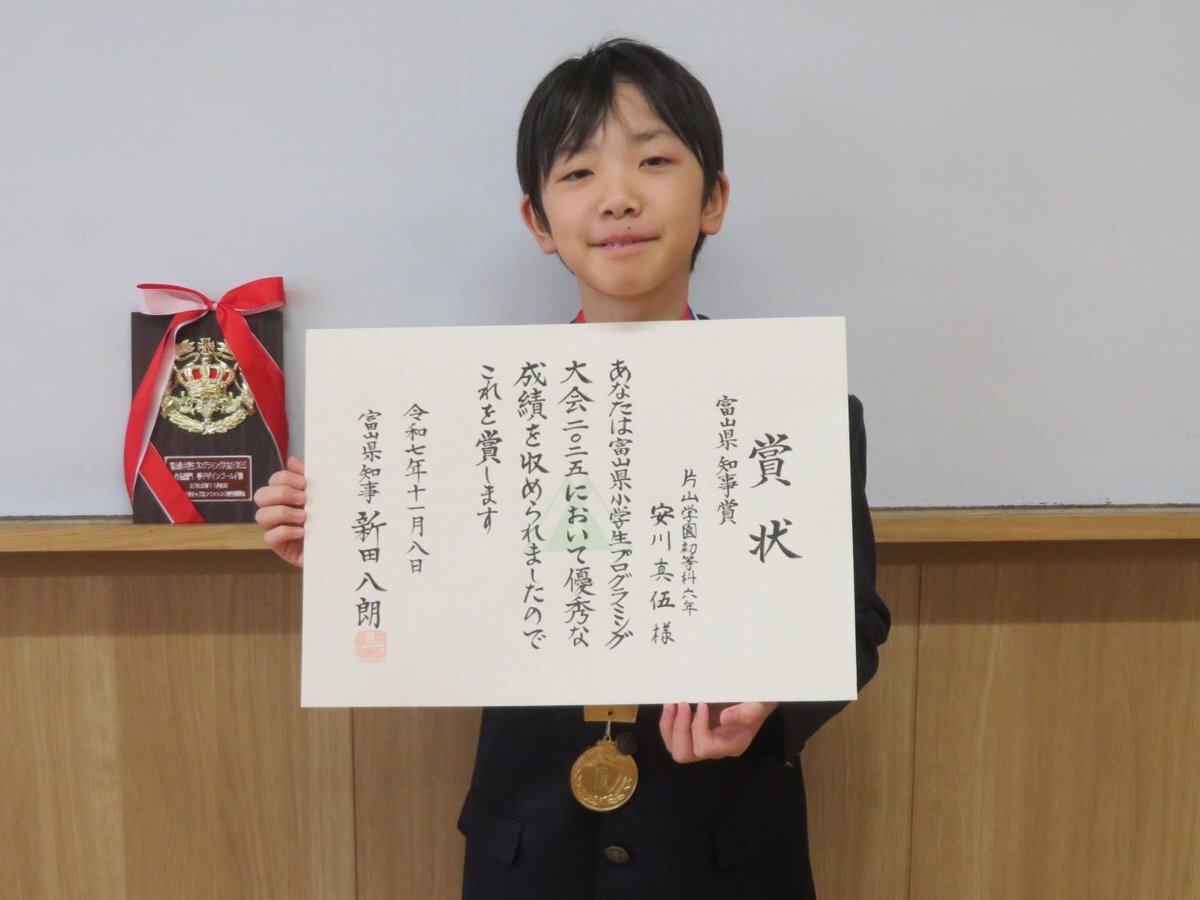 賞状
富山県知事賞
片山学園初等科六年
安川真伍様
あなたは富山県小学生プログラミング
大会二〇二五において優秀な
成績を収められましたので
これを賞します
令和七年十一月八日
富山県知事 新田八朗